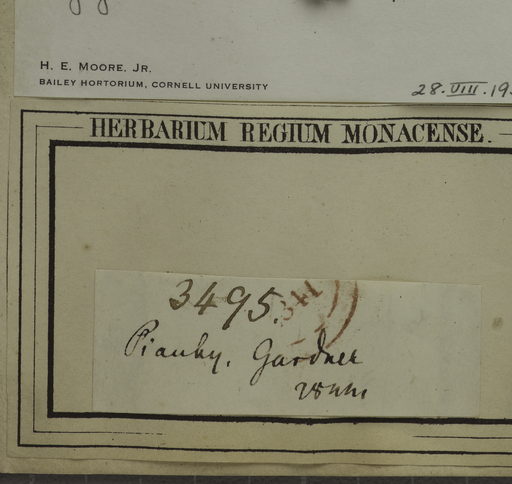 H. E. MOORE. JR.
BAILEY HORTORIUM, CORNELL UNIVERSITY
28. VIII. 19
HERBARIUM REGIUM MONACENSE.
3495.
Piauhy. Gardner